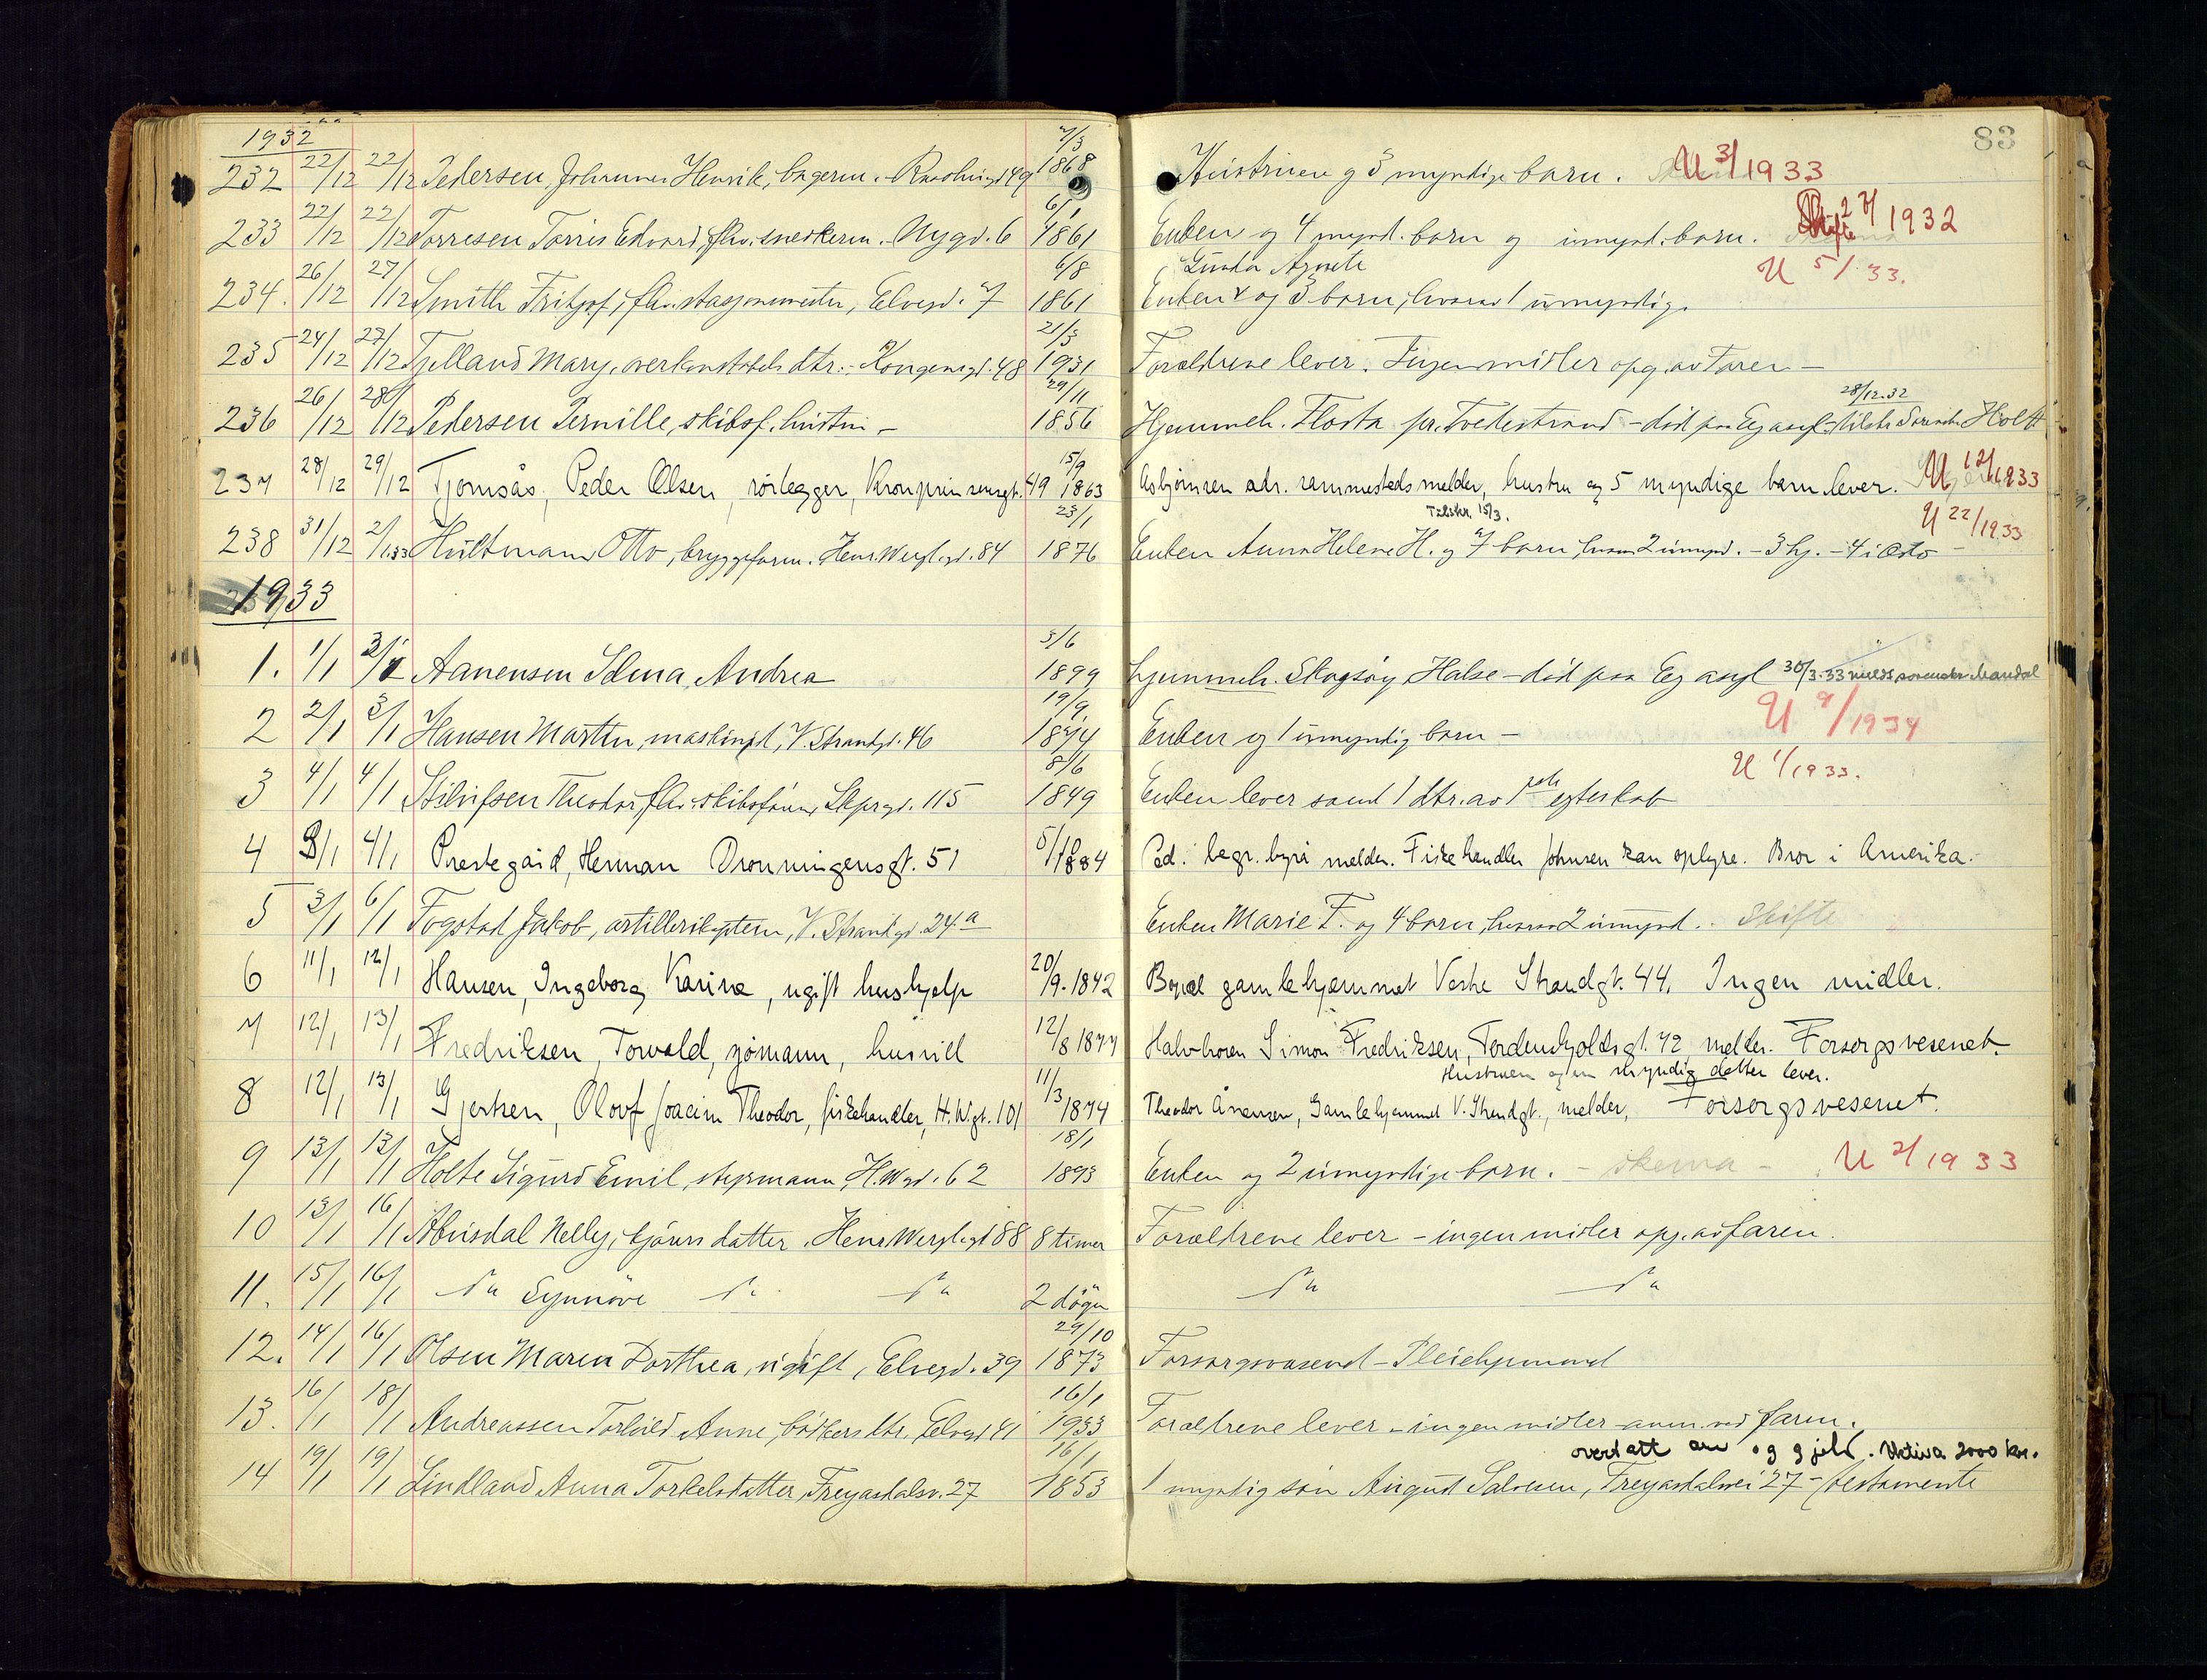 83
1932
232 22/12 22/12 Pedersen, Johannes Henrik, bagerm. 49 7/3 1868 Hustruen og 5 myndige barn. U 3/1933
233 22/12 22/12 Torresen Torris Edvard, fhv. snedkerm. Nygd. 6 6/1 1861 Enken og 4 mynd. barn og umynd. barn. Skifte 27/1932
Gunda Agnete U 5/33.
234. 26/12 27/12 Smith Fritjof, fhv. stasjonsmester, Elvegd. 7 6/8 1861 Enken og 3 barn, hvorav 1 umyndig.
235 24/12 27/12 Tjelland Mary, overkonstabels dtr. Kongensgt. 48 21/3 1931 Forældrene lever. Ingen midler opg. av Faren —
28/12.32
236 26/12 28/12 Pedersen Pernille, skibsf. hustru — 29/11 1856 Hjemmeh. Flosta pr. Tvedestrand – død paa Eg asyl – Holt
237 28/12 29/12 Tjomsås, Peder Olsen, rørlegger, Kronprinsensgt. 49 15/9 1863 Asbjørnsen adr. sammesteds melder, hustru og 5 myndige barn lever. U 12/1933
Tilskr. 15/3.
238 31/12 2/1 33 Hultmann Otto, bryggeform. Henr. Wergl.gd. 84 23/1 1876 Enken Anna Helene H. og 7 barn, hvorav 2 umynd. – 3 hj. – 4 i Oslo – U 22/1933
1933
1. 1/1 3/1 Aanensen Selma Andrea 5/6 1899 hjemmeh. Skogsøy, Halse – død paa Eg asyl 30/3.33 Mandal
2 2/1 3/1 Hansen Martin, maskinist, V. Strandgd. 46 19/9 1874 Enken og 1 umyndig barn – U 9/1934
3 4/1 4/1 Theodor, fhv. skibsfører, Skiprgd. 115 8/6 1849 Enken lever samt 1 dtr. av 1ste egteskab U 1/1933.
4 3/1 4/1 Prestegård, Herman Dronningensgt. 51 5/10 1884 Ped. begr. byrå melder. Fiskehandler Johnsen kan oplyse. Bror i Amerika.
5 3/1 6/1 Fogstad Jakob, artillerikaptein, V. Strandgd. 24a Enken Marie F. og 4 barn, hvorav 2 umynd. Skifte
6 11/1 12/1 Hansen, Ingeborg Karine, ugift hushjelp 20/9. 1842 Bopæl gamlehjemmet Vestre Strandgt. 44. Ingen midler.
7 12/1 13/1 Fredriksen, Torvald, sjømann, husvill 12/8 1877 Halvbroren Simon Fredriksen, Tordenskjoldsgt. 42, melder. Forsorgsvesenet.
Hustruen og en myndig datter lever.
8 12/1 13/1 Gjertsen, Olouf Joacim Theodor, fiskehandler, H.W.gt. 101 11/3 1874 Theodor Ånensen, Gamlehjemmet V. Strandgt., melder, Forsorgsvesenet.
9 13/1 13/1 Holte Sigurd Emil, styrmann, H.W.gd. 62 18/1 1893 Enken og 2 umyndige barn. – skema – U 2/1933
10 13/1 16/1 Abusdal Nelly, kjørers datter. Henr. Wergl.gd 88 8 timer Forældrene lever – ingen midler opg. av faren.
11. 15/1 16/1 do Synnøve do do 2 døgn do do
12. 14/1 16/1 Olsen Maren Dorthea, ugift, Elvegd. 39 29/10 1873 Forsorgsvæsenet – Pleiehjemmet
13. 16/1 18/1 Andreassen Torhild Anne, bødkers dtr. Elvegd 41 16/1 1933 Forældrene lever – ingen midler – anm. ved faren.
overtatt arv og gjeld. Aktiva 2000 kr.
14 19/1 19/1 Lindland Anna Torkelsdatter, Freyasdalsv. 27 16/1 1853 1 myndig søn August Salvesen, Freyasdalsvei 27 – testamente